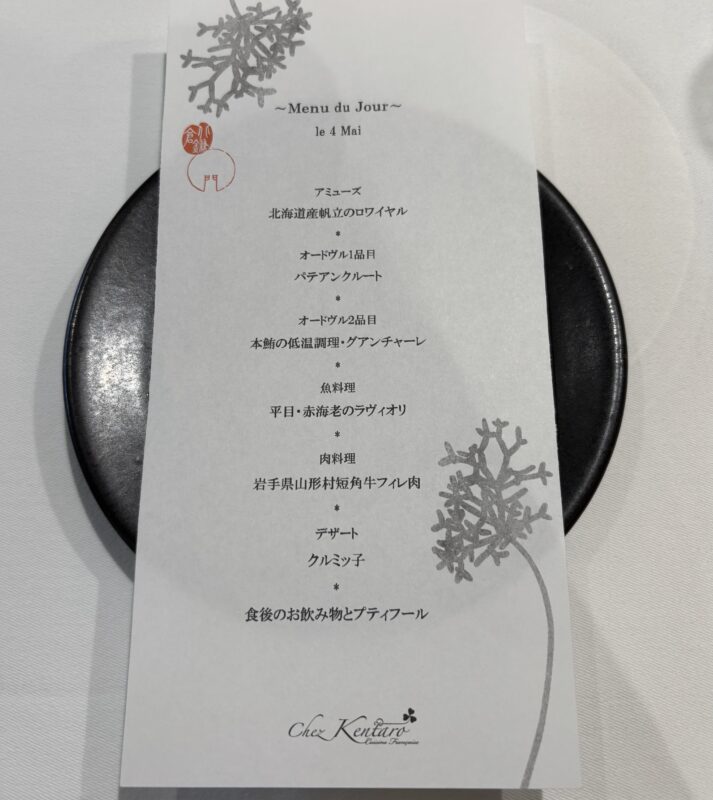 ~Menu du Jour~
le 4 Mai
北鎌倉
門
アミューズ
北海道産帆立のロワイヤル
*
オードヴル1品目
パテアンクルート
*
オードヴル2品目
本鮪の低温調理・グアンチャーレ
*
魚料理
平目・赤海老のラヴィオリ
*
肉料理
岩手県山形村短角牛フィレ肉
*
デザート
クルミッ子
*
食後のお飲み物とプティフール
Chez Kentaro
Cuisine Française